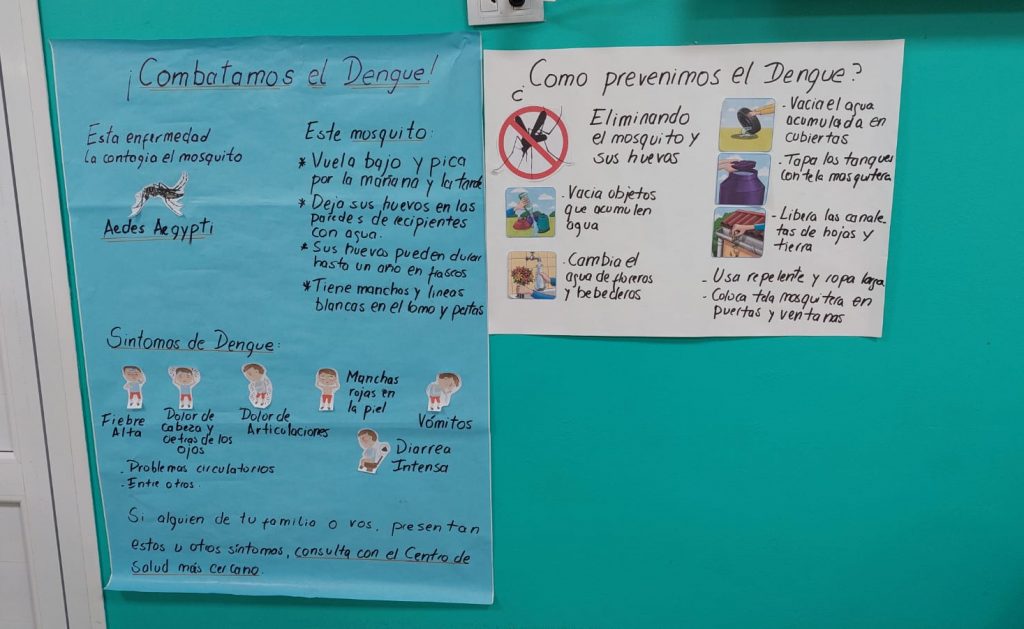 ¡Combatamos el Dengue!
Esta enfermedad
la contagia el mosquito
Aedes Aegypti
Este mosquito:
* Vuela bajo y pica
por la mañana y la tarde
* Deja sus huevos en las
paredes de recipientes
con agua.
* Sus huevos pueden durar
hasta un año en frascos
* Tiene manchas y lineas
blancas en el lomo y patas
Sintomas de Dengue:
Fiebre
Alta
Dolor de
cabeza y
detras de los
ojos
Dolor de
Articulaciones
Manchas
rojas en
la piel
Vómitos
Diarrea
Intensa
- Problemas circulatorios
- Entre otros.
Si alguien de tu familia o vos, presentan
estos u otros síntomas, consulta con el Centro de
Salud más cercano.
¿Como prevenimos el Dengue?
Eliminando
el mosquito y
sus huevos
- Vacia objetos
que acumulen
agua
- Cambia el
agua de floreros
y bebederos
- Vacia el agua
acumulada en
cubiertas
- Tapa los tanques
con tela mosquitera
- Libera las canale-
tas de hojas y
tierra
- Usa repelente y ropa larga
- Coloca tela mosquitera en
puertas y ventanas